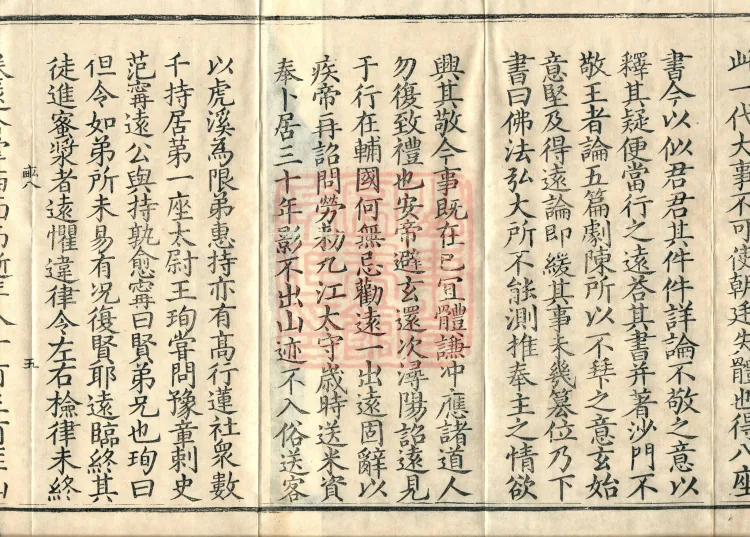 此一代大事不可使朝廷失體也得八座
書今以似君君其件件詳論不敬之意以
釋其疑便當行之遠荅其書并著沙門不
敬王者論五篇劇陳所以不拜之意玄始
意堅及得遠論即緩其事未幾篡位乃下
書曰佛法弘大所不能測推奉主之情欲
興其敬今事既在己宜體謙冲應諸道人
勿復致禮也安帝避玄還次潯陽詔遠見
于行在輔國何無忌勸遠一出遠固辭以
疾帝再詔問勞勑九江太守歲時送米資
奉卜居三十年影不出山迹不入俗送客
以虎溪為限弟惠持亦有高行蓮社衆數
千持居第一座太尉王珣甞問豫章刺史
范寗遠公與持孰愈寗曰賢弟兄也珣曰
但令如弟所未易有况復賢耶遠臨終其
徒進蜜漿者遠懼違律令左右撿律未終
五